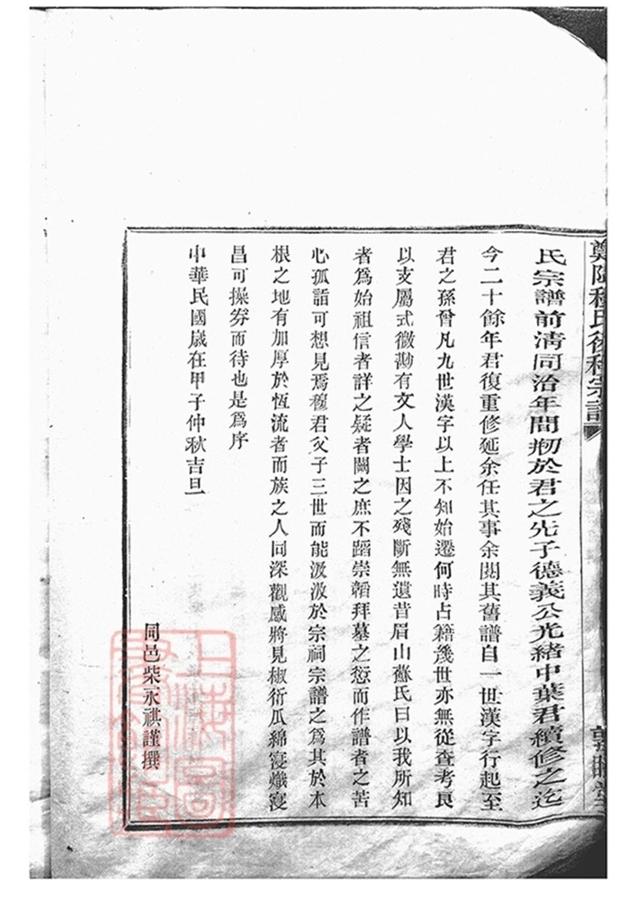 氏宗譜前清同治年間刱於君之先子德義公光緒中葉君續修之迄
今二十餘年君復重修延余任其事余閱其舊譜自一世漢字行起至
君之孫曾凡九世漢字以上不知始遷何時占籍幾世亦無從查考良
以支屬式微勘有文人學士因之殘斷無遺昔眉山蘇氏曰以我所知
者爲始祖信者詳之疑者闕之庶不蹈崇韜拜墓之愆而作譜者之苦
心孤詣可想見焉穜君父子三世而能汲汲於宗祠宗譜之爲其於本
根之地有加厚於恆流者而族之人同深觀感將見椒衍瓜綿寖熾寖
昌可操券而待也是爲序
中華民國歲在甲子仲秋吉旦
同邑柴永祺謹撰